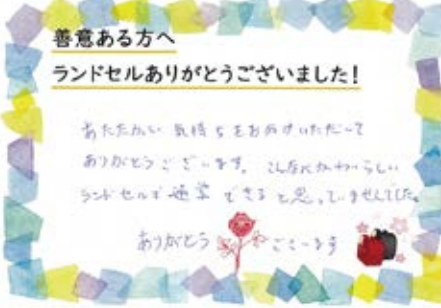 善意ある方へ
ランドセルありがとうございました!
あたたかい 気持ちをおめすいただいて
ありがとうございます。こんなにかわいらしい
ランドセルで通学できると思っていませんでした。
ありがとう ございます